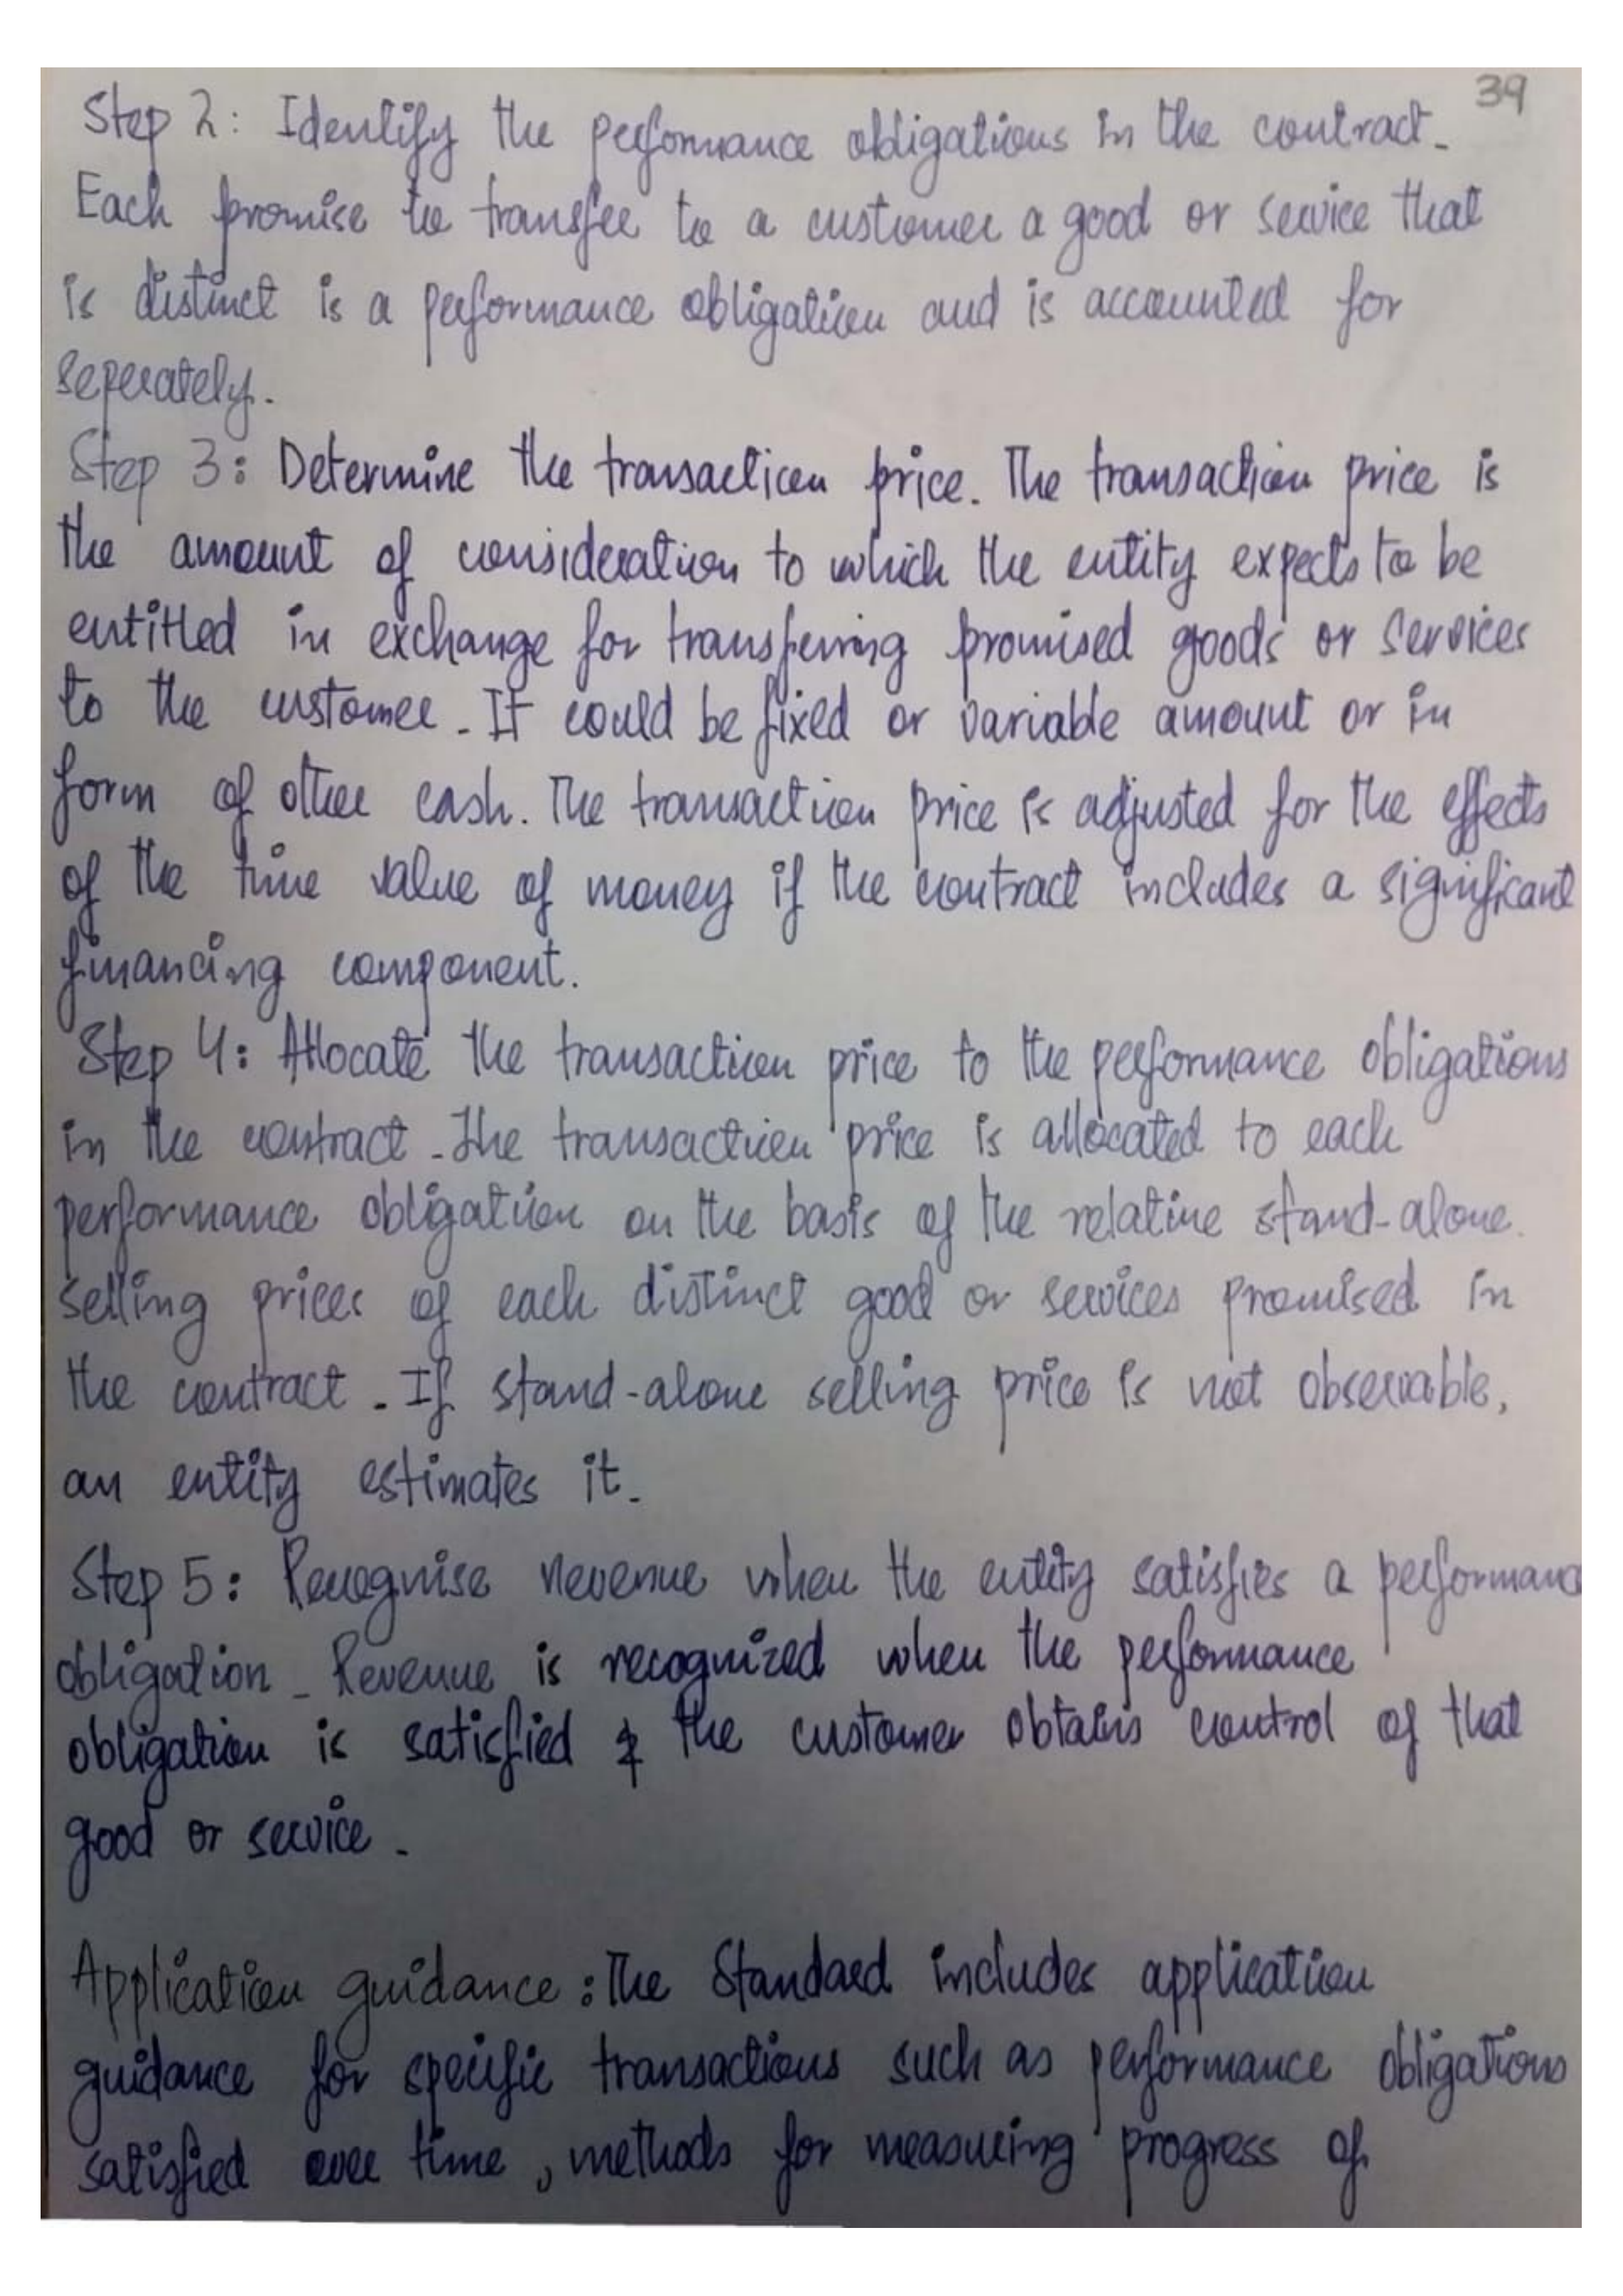 39
Step 2: Identify the performance obligations in the contract.
Each promise to transfer to a customer a good or service that
is distinct is a performance obligation and is accounted for
seperately.
Step 3: Determine the transaction price. The transaction price is
the amount of consideration to which the entity expects to be
entitled in exchange for transferring promised goods or services
to the customer. It could be fixed or variable amount or in
form of other cash. The transaction price is adjusted for the effects
of the time value of money if the contract includes a significant
financing component.
Step 4: Allocate the transaction price to the performance obligations
in the contract. The transaction price is allocated to each
performance obligation on the basis of the relative stand-alone
selling prices of each distinct good or services promised in
the contract. If stand-alone selling price is not observable,
an entity estimates it.
Step 5: Recognise revenue when the entity satisfies a performanc
obligation. Revenue is recognized when the performance
obligation is satisfied & the customer obtains control of that
good or service.
Application guidance: The Standard includes application
guidance for specific transactions such as performance obligations
satisfied over time, methods for measuring progress of